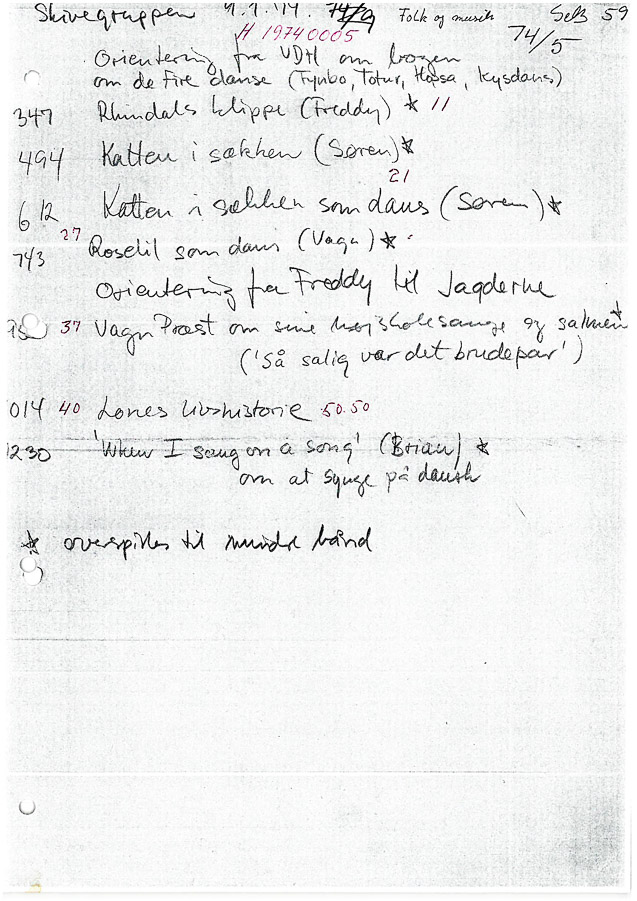 Skivegruppen 9.1.'74. 74/9 Folk og musik SelB 59
H 19740005 74/5
Orientering fra UDH om bogen
om de fire danse (Fynbo, Totur, Hopsa, Kysdans)
347 Rhindals klippe (Freddy) * 11
494 Katten i sækken (Søren) *
21
612 Katten i sækken som dans (Søren) *
743 27 Roselil som dans (Vagn) *
Orientering fra Freddy til Jagderne
37 Vagn Præst om sine højskolesange og salmen *
('Så salig var det brudepar')
014 40 Lones livshistorie 50.50
230 'When I sang on a song' (Brian) *
om at synge på dansk
* overspilles til mindre bånd